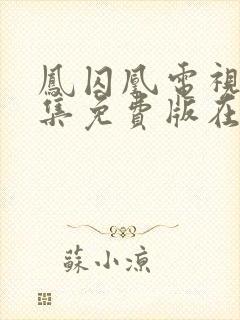 鳳囚凰電視
集免費版在
蘇小涼